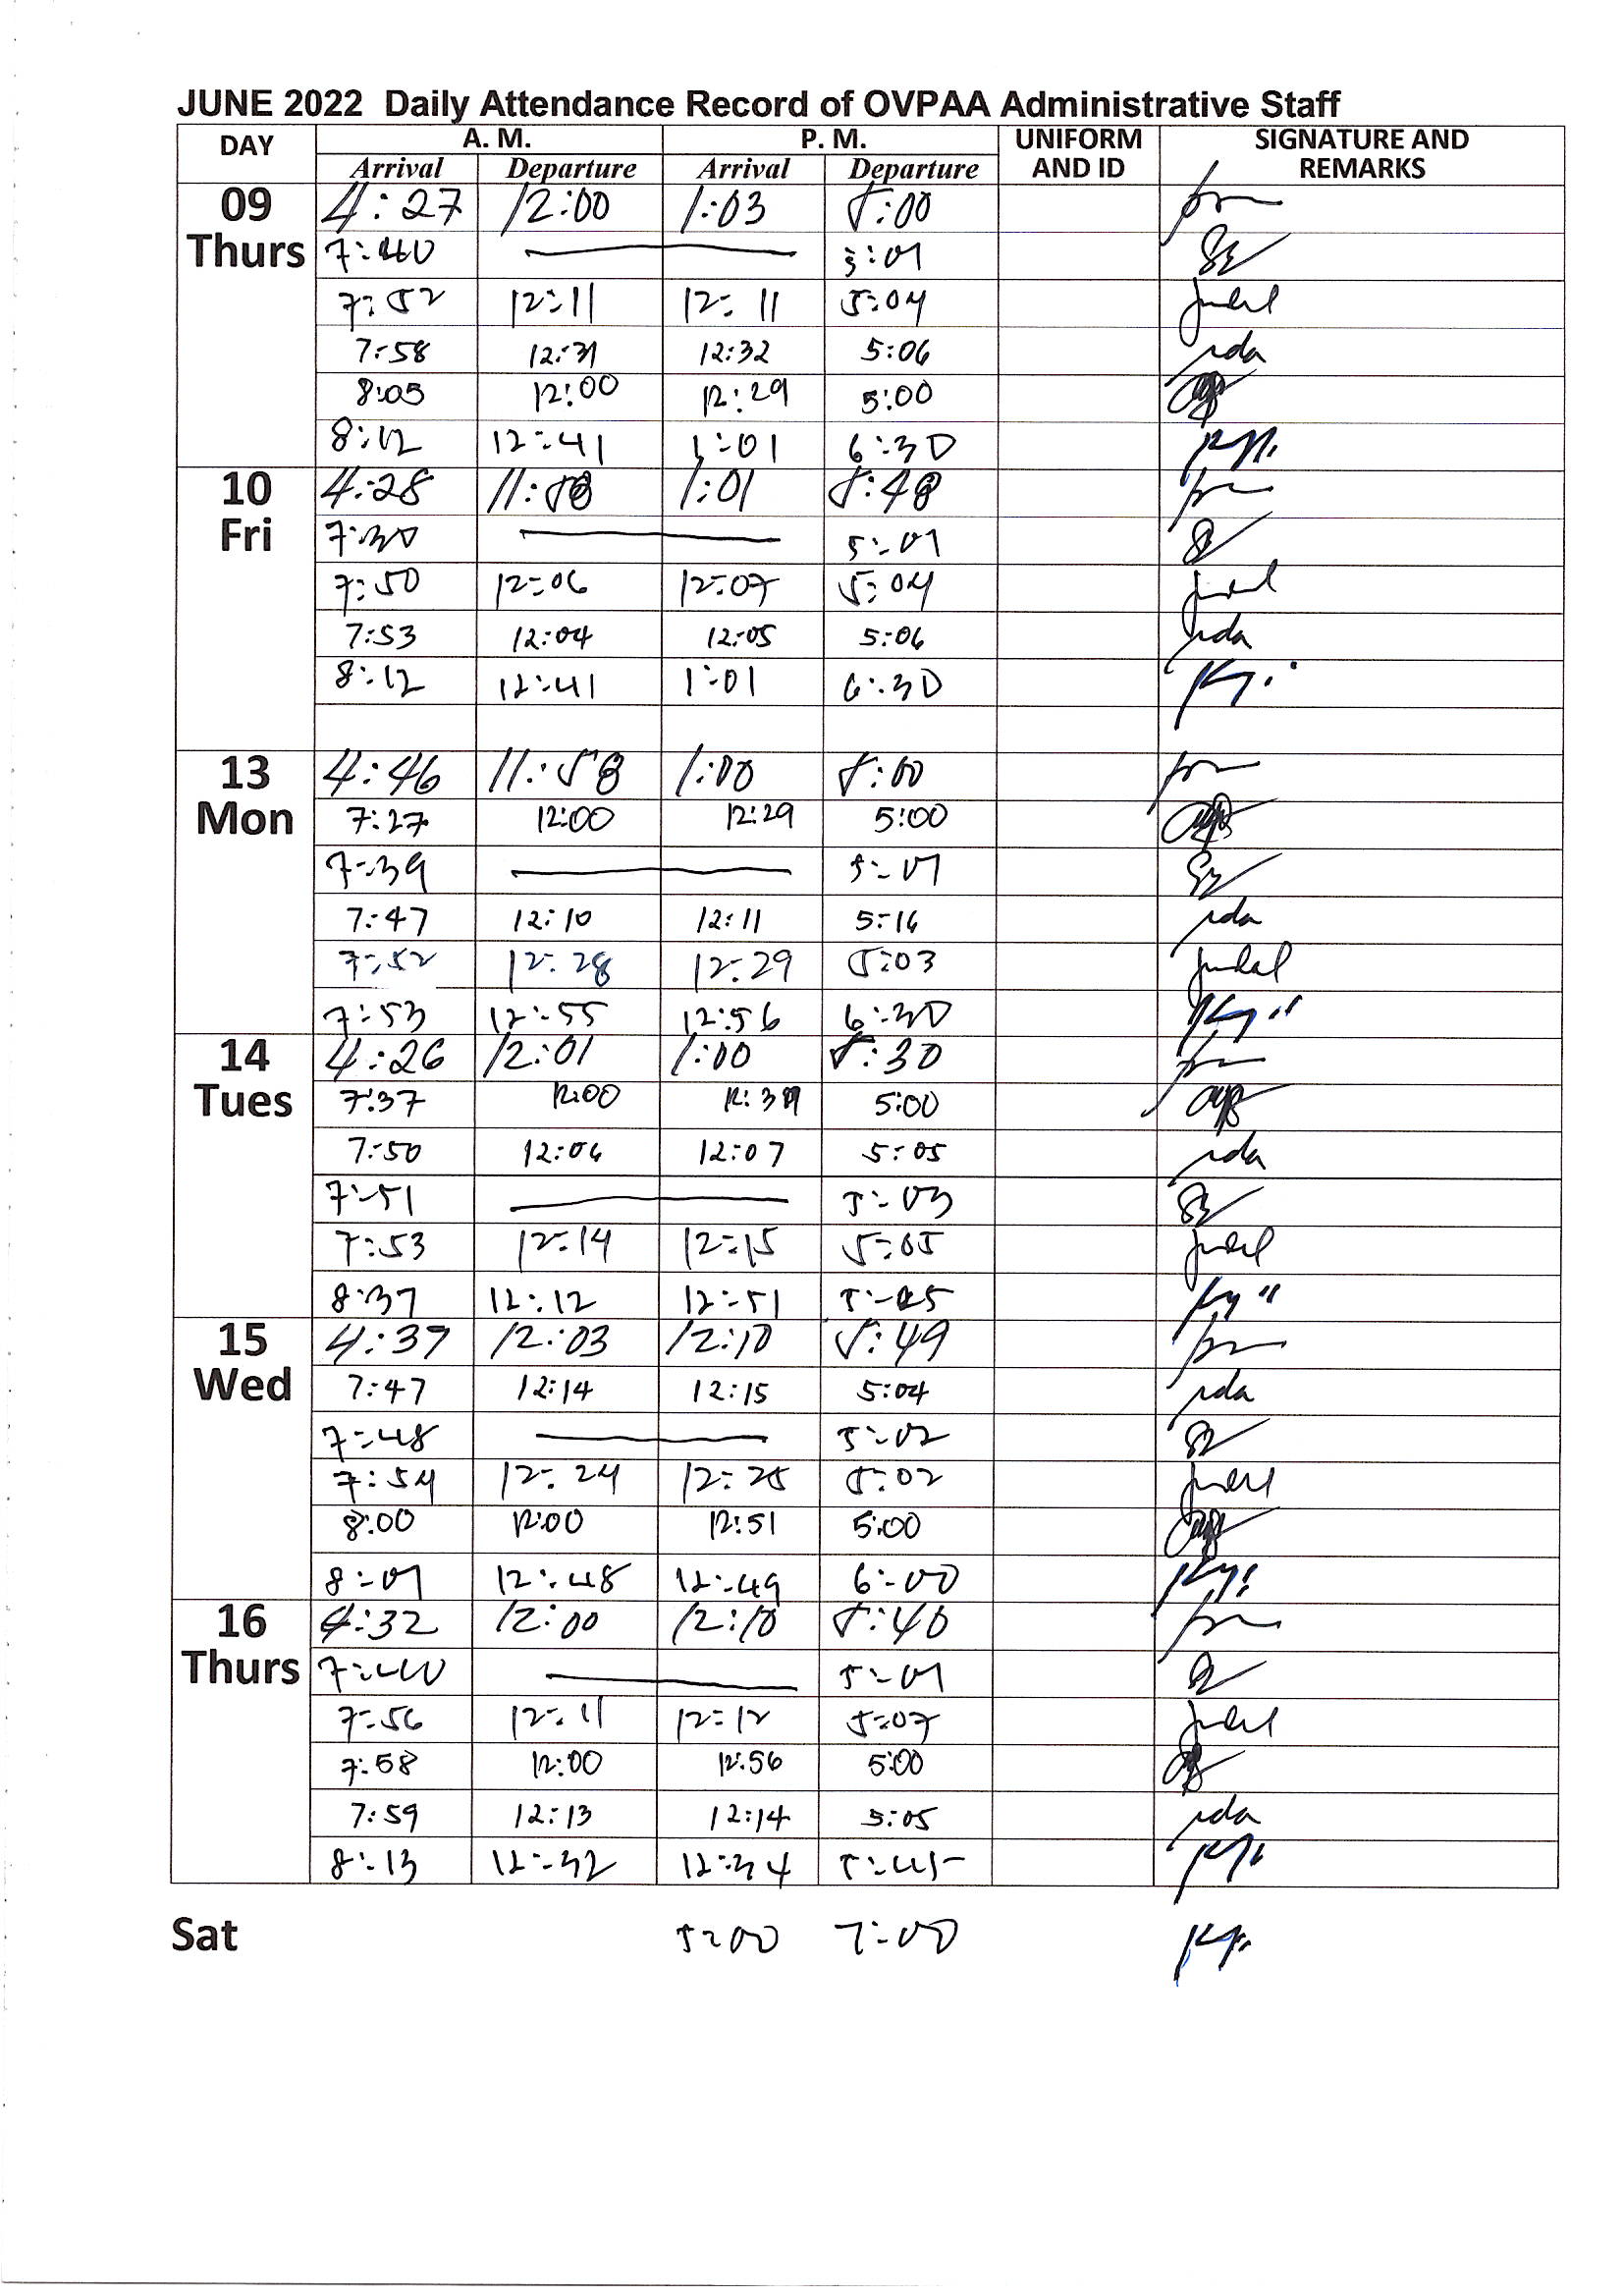 JUNE 2022 Daily Attendance Record of OVPAA Administrative Staff
DAY A. M. P. M. UNIFORM AND ID SIGNATURE AND REMARKS
Arrival Departure Arrival Departure
09 Thurs
4:27 12:00 1:03 5:00
7:40 5:01
7:52 12:11 12:11 5:04
7:58 12:31 12:32 5:06
8:05 12:00 12:29 5:00
8:12 12:41 1:01 6:30
10 Fri
4:28 11:58 1:01 5:48
7:30 5:01
7:50 12:06 12:07 5:04
7:53 12:04 12:05 5:06
8:12 12:41 1:01 6:30
13 Mon
4:46 11:58 1:00 5:00
7:27 12:00 12:29 5:00
7:39 5:01
7:47 12:10 12:11 5:16
7:52 12:28 12:29 5:03
7:53 12:55 12:56 6:30
14 Tues
4:26 12:01 1:00 5:30
7:37 12:00 5:00
7:50 12:06 12:07 5:05
7:51 5:03
7:53 12:14 12:15 5:05
8:37 12:12 12:51
15 Wed
4:39 12:03 12:10 5:49
7:47 12:14 12:15 5:04
7:48 5:02
7:54 12:24 12:25 5:02
8:00 12:00 12:51 5:00
8:01 12:48 12:49 6:00
16 Thurs
4:32 12:00 12:10 5:40
7:40 5:01
7:56 12:11 12:12 5:07
7:58 12:00 12:56 5:00
7:59 12:13 12:14 5:05
8:13 12:32 12:34 5:45
Sat 5:00 7:00